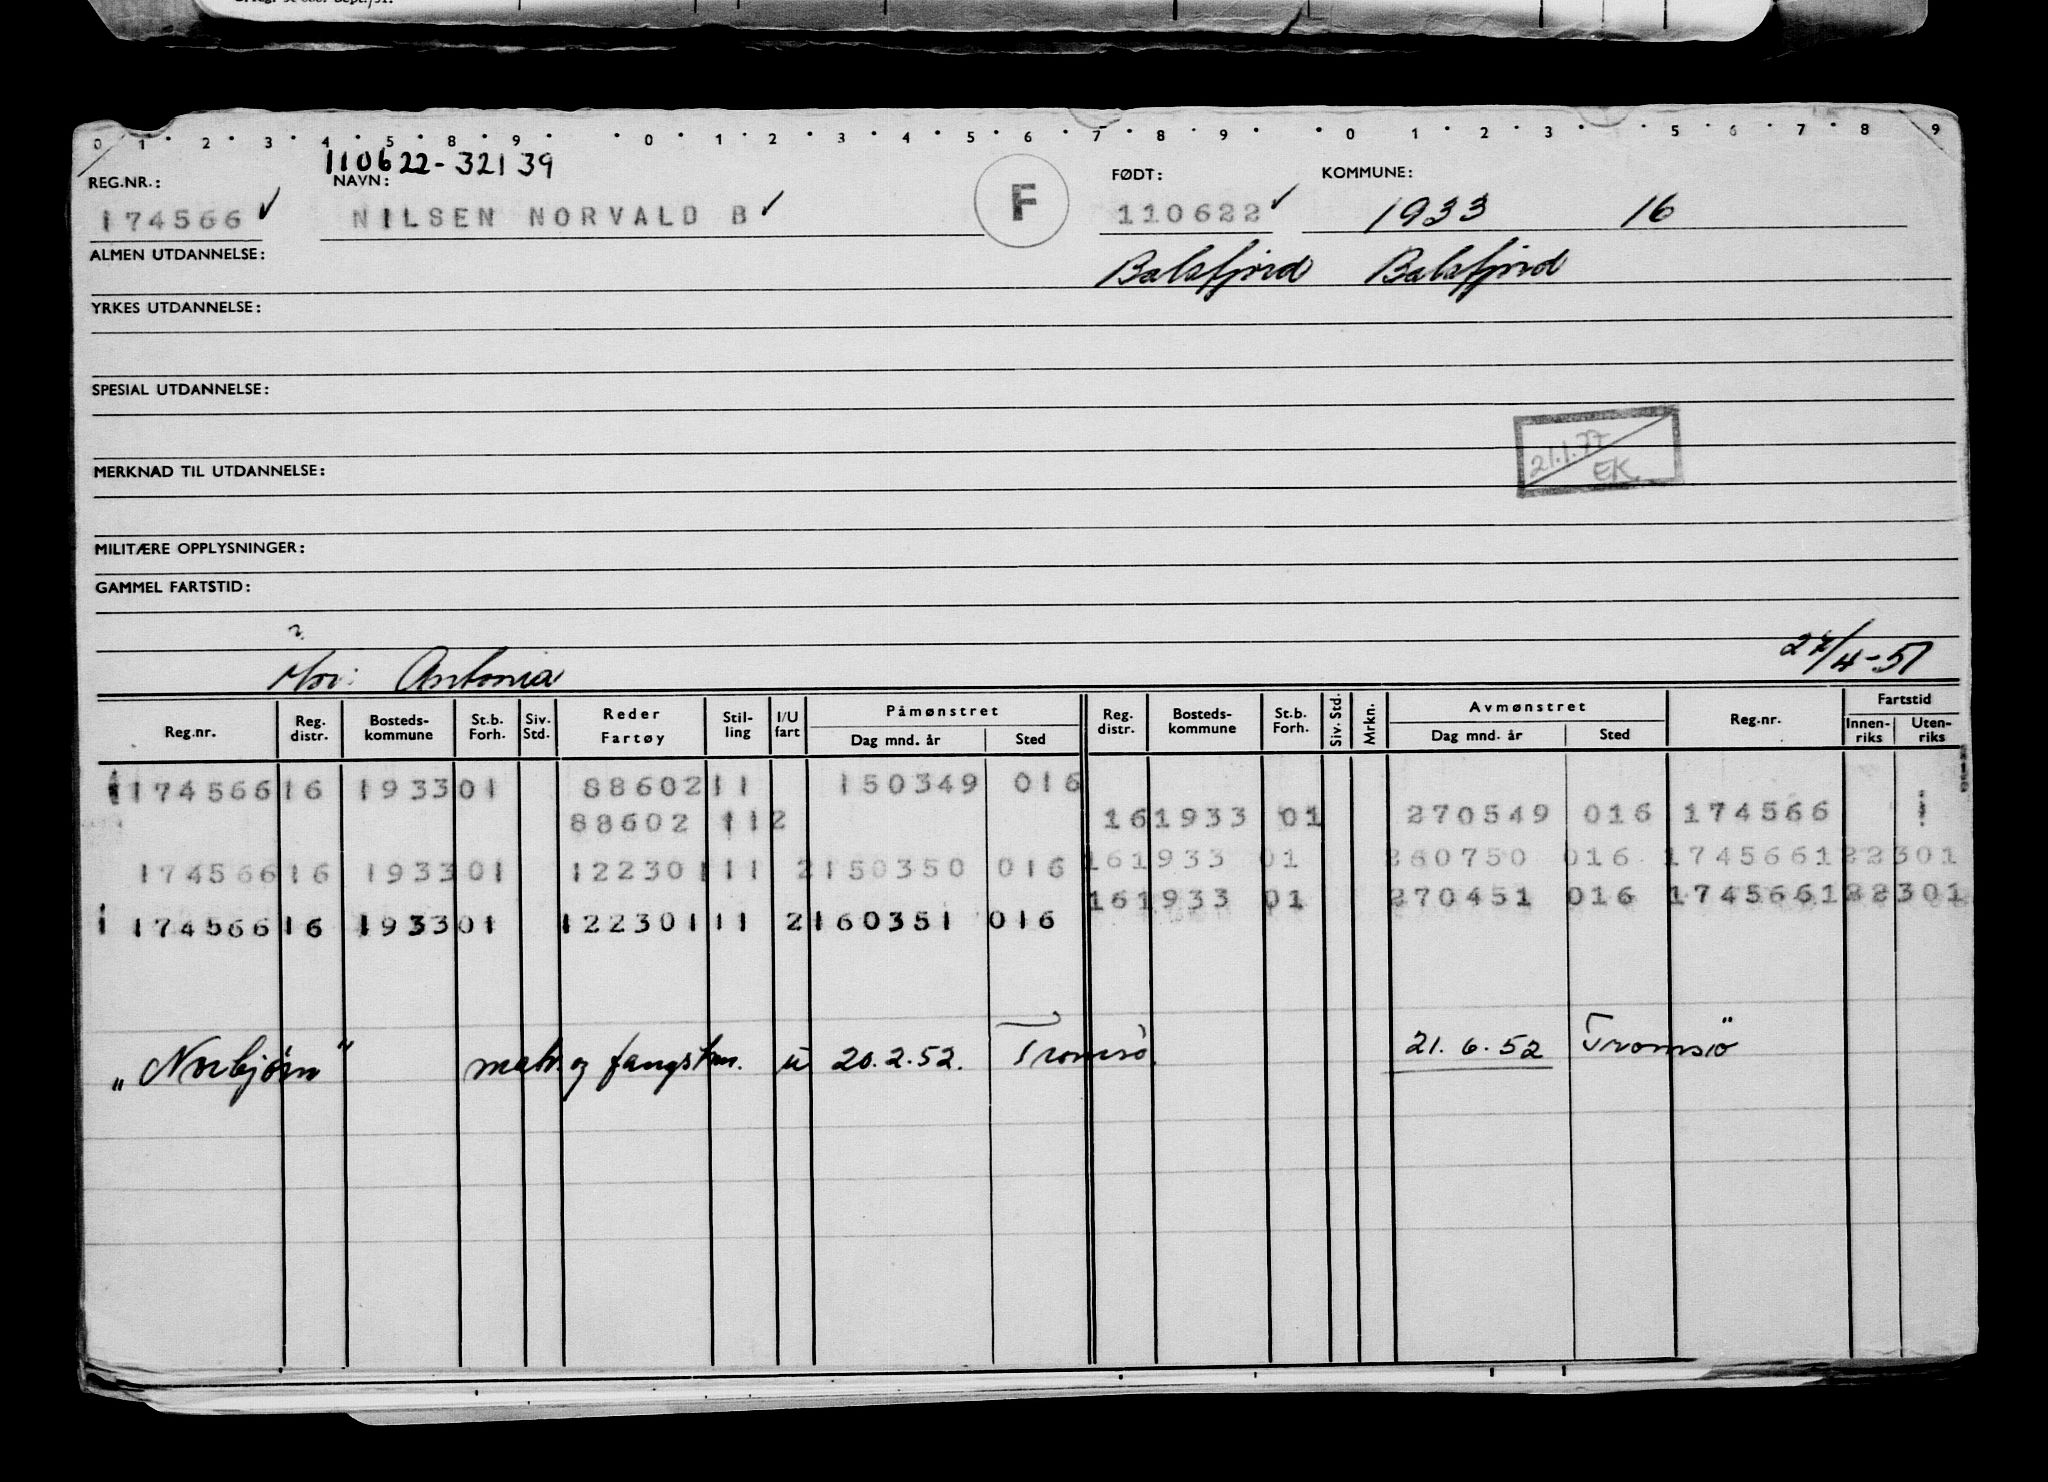 0 1 2 3 4 5 8 9 0 1 2 3 4 5 6 7 8 9 0 1 2 3 5 6 7 8 9
110622-32139
REG.NR.: NAVN: FØDT: KOMMUNE:
174566 ✓ NILSEN NORVALD B ✓ F 110622 ✓ 1933 16
ALMEN UTDANNELSE: Balsfjord Balsfjord
YRKES UTDANNELSE:
SPESIAL UTDANNELSE:
21.1.77
EK.
MERKNAD TIL UTDANNELSE:
MILITÆRE OPPLYSNINGER:
GAMMEL FARTSTID:
Mor: Antonia 27/4-51
Reg.nr. Reg. distr. Bosteds-kommune St.b. Forh. Siv. Std. Reder Fartøy Stil-ling I/U fart Påmønstret Dag mnd. år Sted Reg. distr. Bosteds-kommune St.b. Forh. Siv. Std. Mrkn. Avmønstret Dag mnd. år Sted Reg.nr. Fartstid Innen-riks Uten-riks
174566 16 1933 01 88602 11 150349 016
88602 112 16 1933 01 270549 016 174566
174566 16 1933 01 122301 11 2 150350 016 16 1933 01 260750 016 174566 122301
16 1933 01 270451 016 174566 122301
174566 16 1933 01 122301 11 2 160351 016
„Norbjørn" matr. og fangstm. u 20.2.52. Tromsö. 21.6.52 Tromsö